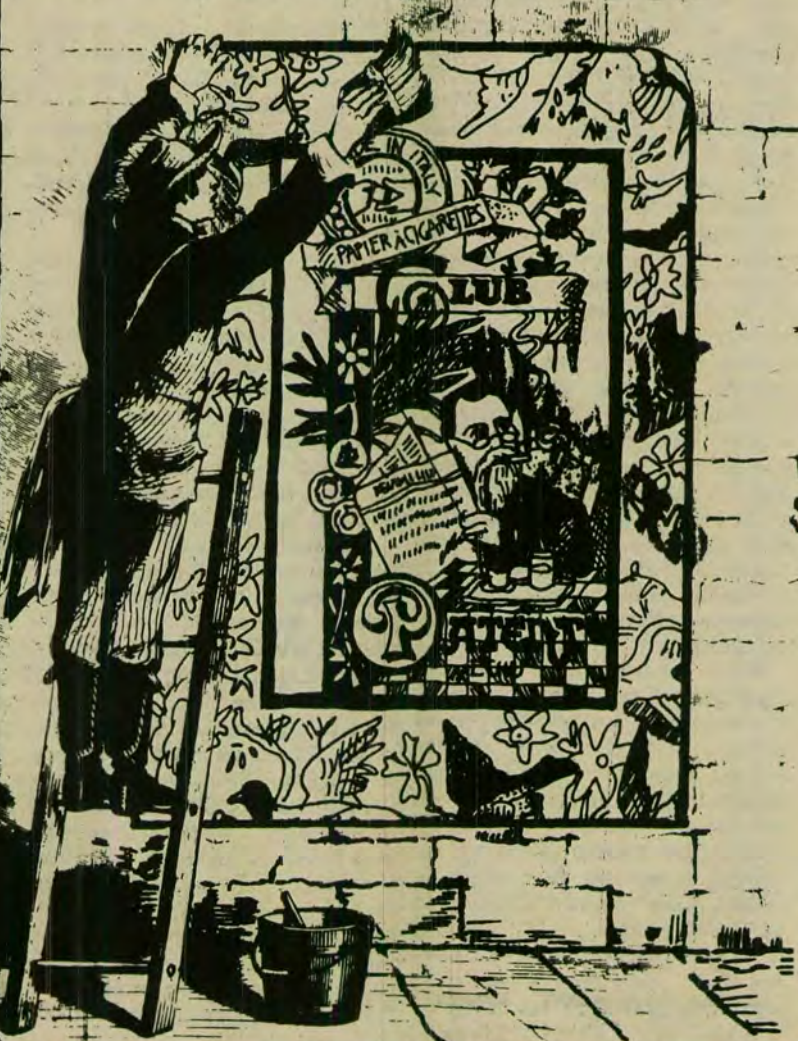 E IN ITALY
PAPIER À CIGARETTES
CLUB
PATENT